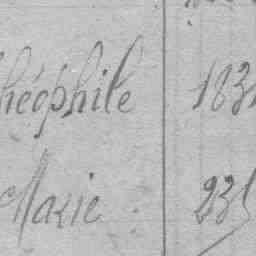 Théophile 183
Marie 235